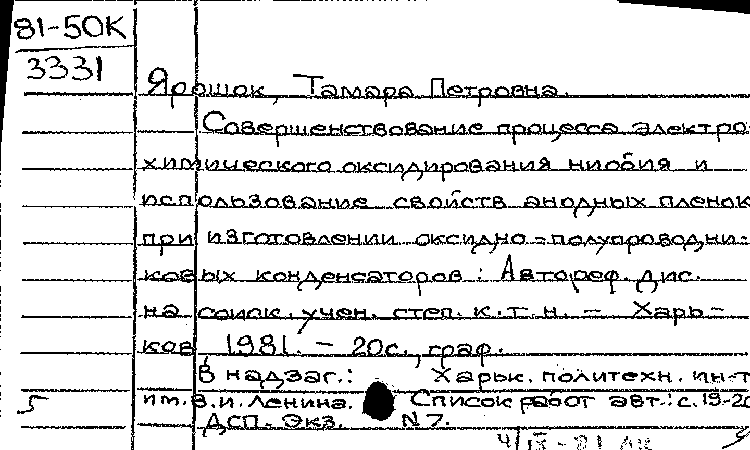 81-50К
3331
Ярошок, Тамара Петровна.
Совершенствование процесса электро
химического оксидирования ниобия и
использование свойств анодных пленок
при изготовлении оксидно-полупроводни-
ковых конденсаторов : Автореф. дис.
на соиск. учен. степ. к.т.н. – Харь-
ков, 1981. – 20с., граф.
В надзаг.: Харьк. политехн. ин-т
5 им. В.И. Ленина. Список работ авт.: с.19-20
ДСП. Экз. N 7.
4/IX-81